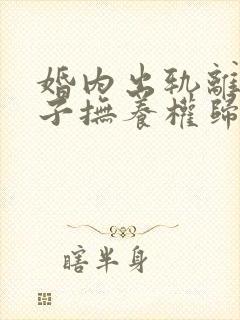 婚内出轨離
子撫養權歸
瞎半身